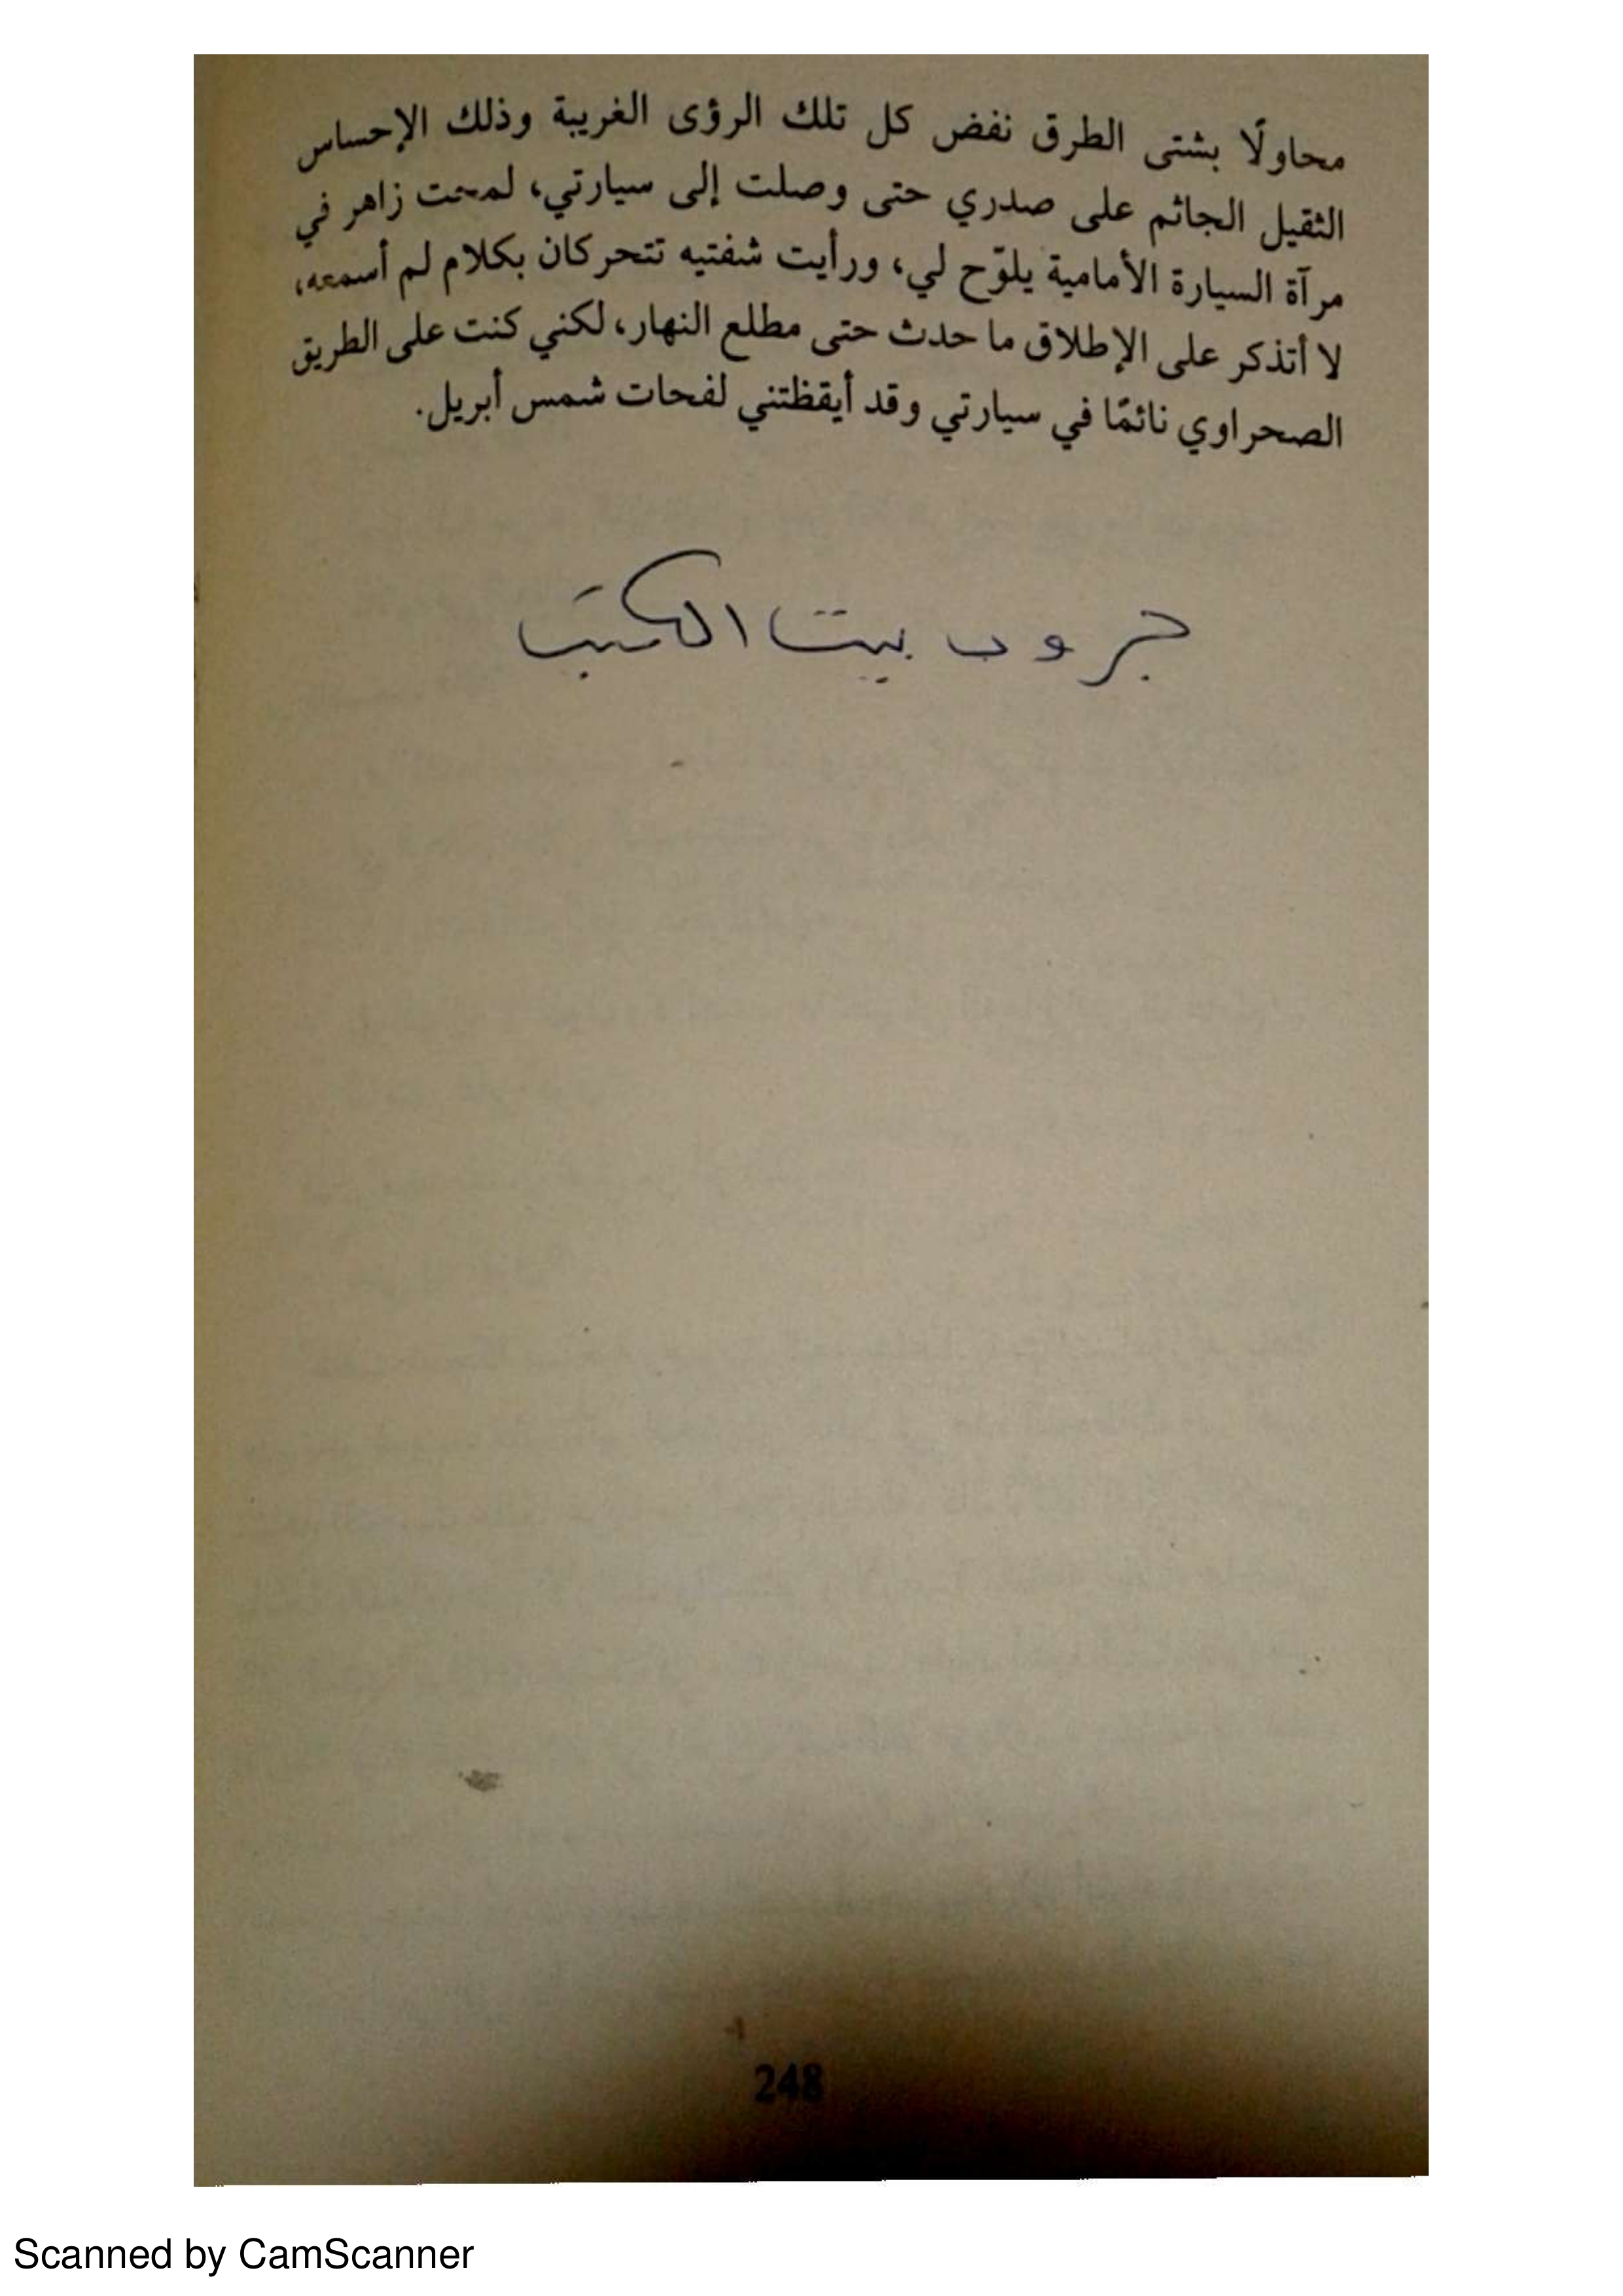 محاولًا بشتى الطرق نفض كل تلك الرؤى الغريبة وذلك الإحساس
الثقيل الجاثم على صدري حتى وصلت إلى سيارتي، لمحت زاهر في
مرآة السيارة الأمامية يلوّح لي، ورأيت شفتيه تتحركان بكلام لم أسمعه،
لا أتذكر على الإطلاق ما حدث حتى مطلع النهار، لكني كنت على الطريق
الصحراوي نائمًا في سيارتي وقد أيقظتني لفحات شمس أبريل.
جروب بيت الكتب
248
Scanned by CamScanner